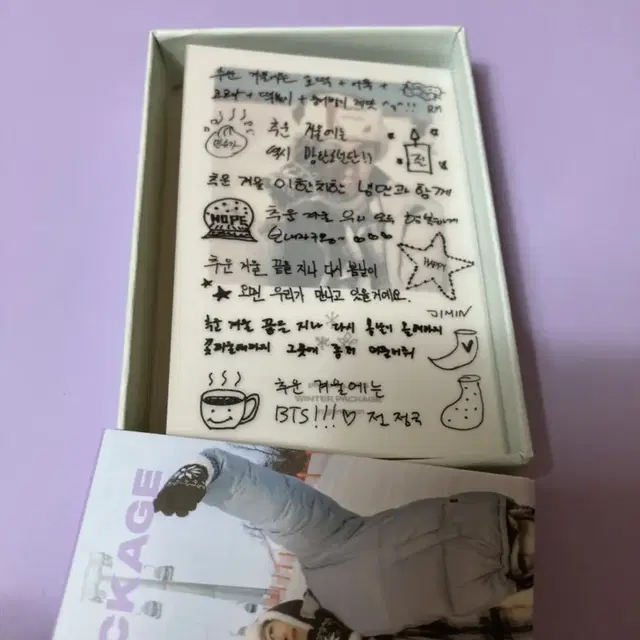 추운 겨울에는 호떡 + 어묵 +
+ 떡볶이 + ^_^!!
추운 겨울에는
역시 방탄소년단히
진
추운 겨울 이한치한 냉면과 함께
HOPE
추운 겨울 우리 모두
HAPPY
추운 겨울 끝을 지나 다시 봄날이
오면 우리가 만나고 있을거예요.
JIMIN
추운 겨울 끝을 지나 다시 봄날이 올때까지
꽃 피울때까지 그곳에 좀더 머물러줘
WINTER PACKAGE
추운 겨울에는
BTS!!! ♡ 전정국
CKAGE